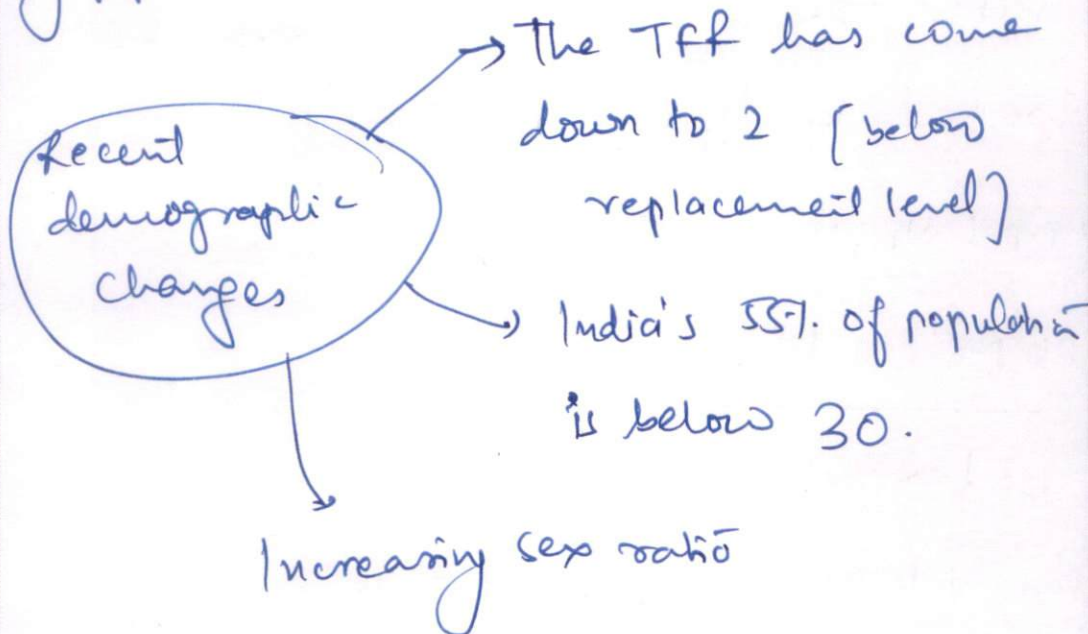 Recent
demographic
changes
The TFR has come
down to 2 [below
replacement level]
India's 55%. of population
is below 30.
Increasing sex ratio